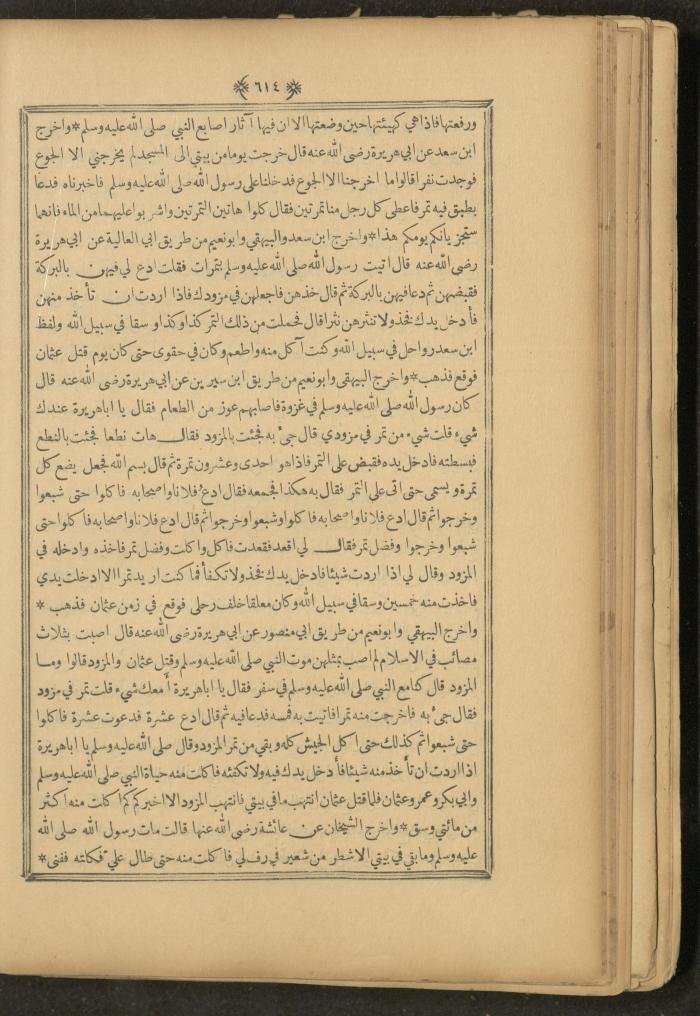 ﴿ ٦١٤ ﴾
ورفعتها فاذا هي كهيئتها حين وضعتها الا ان فيها آثار اصابع النبي صلى الله عليه وسلم * واخرج
ابن سعد عن ابي هريرة رضى الله عنه قال خرجت يوما من بيتي الى المسجد لم يخرجني الا الجوع
فوجدت نفرا قالوا ما اخرجنا الا الجوع فدخلنا على رسول الله صلى الله عليه وسلم فاخبرناه فدعا
بطبق فيه تمر فاعطى كل رجل منا تمرتين فقال كلوا هاتين التمرتين واشربوا عليهما من الماء فانهما
ستجزيانكم يومكم هذا * واخرج ابن سعد والبيهقي وابو نعيم من طريق ابي العالية عن ابي هريرة
رضى الله عنه قال اتيت رسول الله صلى الله عليه وسلم بتمرات فقلت ادع لي فيهن بالبركة
فقبضهن ثم دعا فيهن بالبركة ثم قال خذهن فاجعلهن في مزودك فاذا اردت ان تأخذ منهن
فأدخل يدك فخذ ولا تنثرهن نثرا قال فحملت من ذلك التمر كذا وكذا وسقا في سبيل الله ولفظ
ابن سعد رواحل في سبيل الله وكنت آكل منه واطعم وكان في حقوى حتى كان يوم قتل عثمان
فوقع فذهب * واخرج البيهقي وابو نعيم من طريق ابن سيرين عن ابي هريرة رضى الله عنه قال
كان رسول الله صلى الله عليه وسلم في غزوة فاصابهم عوز من الطعام فقال يا ابا هريرة عندك
شيء قلت شيء من تمر في مزودي قال جئ به فجئت بالمزود فقال هات نطعا فجئت بالنطع
فبسطته فادخل يده فقبض على التمر فاذا هو احدى وعشرون تمرة ثم قال بسم الله فجعل يضع كل
تمرة ويسمى حتى اتى على التمر فقال به هكذا فجمعه فقال ادع فلانا واصحابه فاكلوا حتى شبعوا
وخرجوا ثم قال ادع فلانا واصحابه فاكلوا وشبعوا وخرجوا ثم قال ادع فلانا واصحابه فاكلوا حتى
شبعوا وخرجوا وفضل تمر فقال لي اقعد فقعدت فاكل واكلت وفضل تمر فاخذه وادخله في
المزود وقال لي اذا اردت شيئا فادخل يدك فخذ ولا تكفأ فما كنت اريد تمرا الا ادخلت يدي
فاخذت منه خمسين وسقا في سبيل الله وكان معلقا خلف رحلى فوقع في زمن عثمان فذهب *
واخرج البيهقي وابو نعيم من طريق ابي منصور عن ابي هريرة رضى الله عنه قال اصبت بثلاث
مصائب في الاسلام لم اصب بمثلهن موت النبي صلى الله عليه وسلم وقتل عثمان والمزود قالوا وما
المزود قال كنا مع النبي صلى الله عليه وسلم في سفر فقال يا ابا هريرة أمعك شيء قلت تمر في مزود
فقال جئ به فاخرجت منه تمرا فاتيت به فمسه فدعا فيه ثم قال ادع عشرة فدعوت عشرة فاكلوا
حتى شبعوا ثم كذلك حتى اكل الجيش كله وبقي من تمر المزود وقال صلى الله عليه وسلم يا ابا هريرة
اذا اردت ان تأخذ منه شيئا فأدخل يدك فيه ولا تكفئه فاكلت منه حياة النبي صلى الله عليه وسلم
وابي بكر وعمر وعثمان فلما قتل عثمان انتهب ما في بيتي فانتهب المزود الا اخبركم كم اكلت منه اكثر
من مائتي وسق * واخرج الشيخان عن عائشة رضى الله عنها قالت مات رسول الله صلى الله
عليه وسلم وما بقي في بيتي الا شطر من شعير في رف لي فاكلت منه حتى طال علي فكلته ففنى *